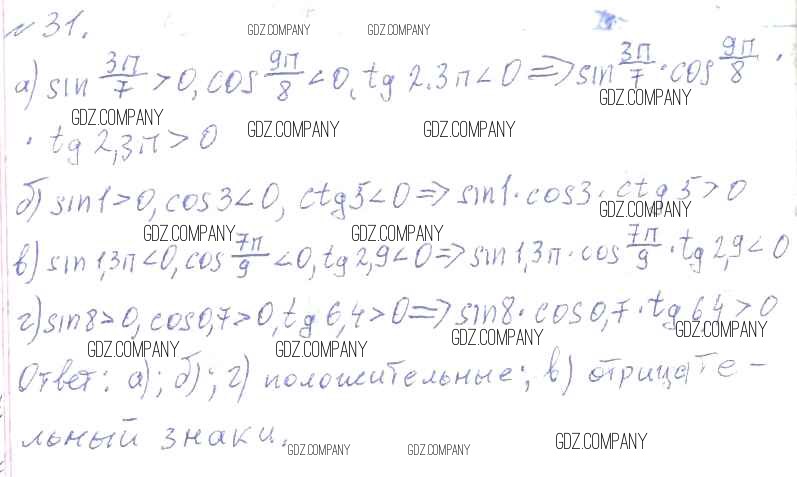 № 31.
GDZ.COMPANY GDZ.COMPANY
а) sin 3π/7 > 0, cos 9π/8 < 0, tg 2.3π < 0 => sin 3π/7 · cos 9π/8 ·
GDZ.COMPANY GDZ.COMPANY
· tg 2,3π > 0
GDZ.COMPANY GDZ.COMPANY
б) sin1 > 0, cos3 < 0, ctg5 < 0 => sin1 · cos3 · ctg5 > 0
GDZ.COMPANY GDZ.COMPANY GDZ.COMPANY
в) sin 1,3π < 0, cos 7π/9 < 0, tg 2,9 < 0 => sin 1,3π · cos 7π/9 · tg 2,9 < 0
г) sin8 > 0, cos0,7 > 0, tg 6,4 > 0 => sin8 · cos0,7 · tg 6,4 > 0
GDZ.COMPANY GDZ.COMPANY GDZ.COMPANY GDZ.COMPANY
Ответ: а); б); г) положительные; в) отрицате-
льный знаки.
GDZ.COMPANY GDZ.COMPANY GDZ.COMPANY